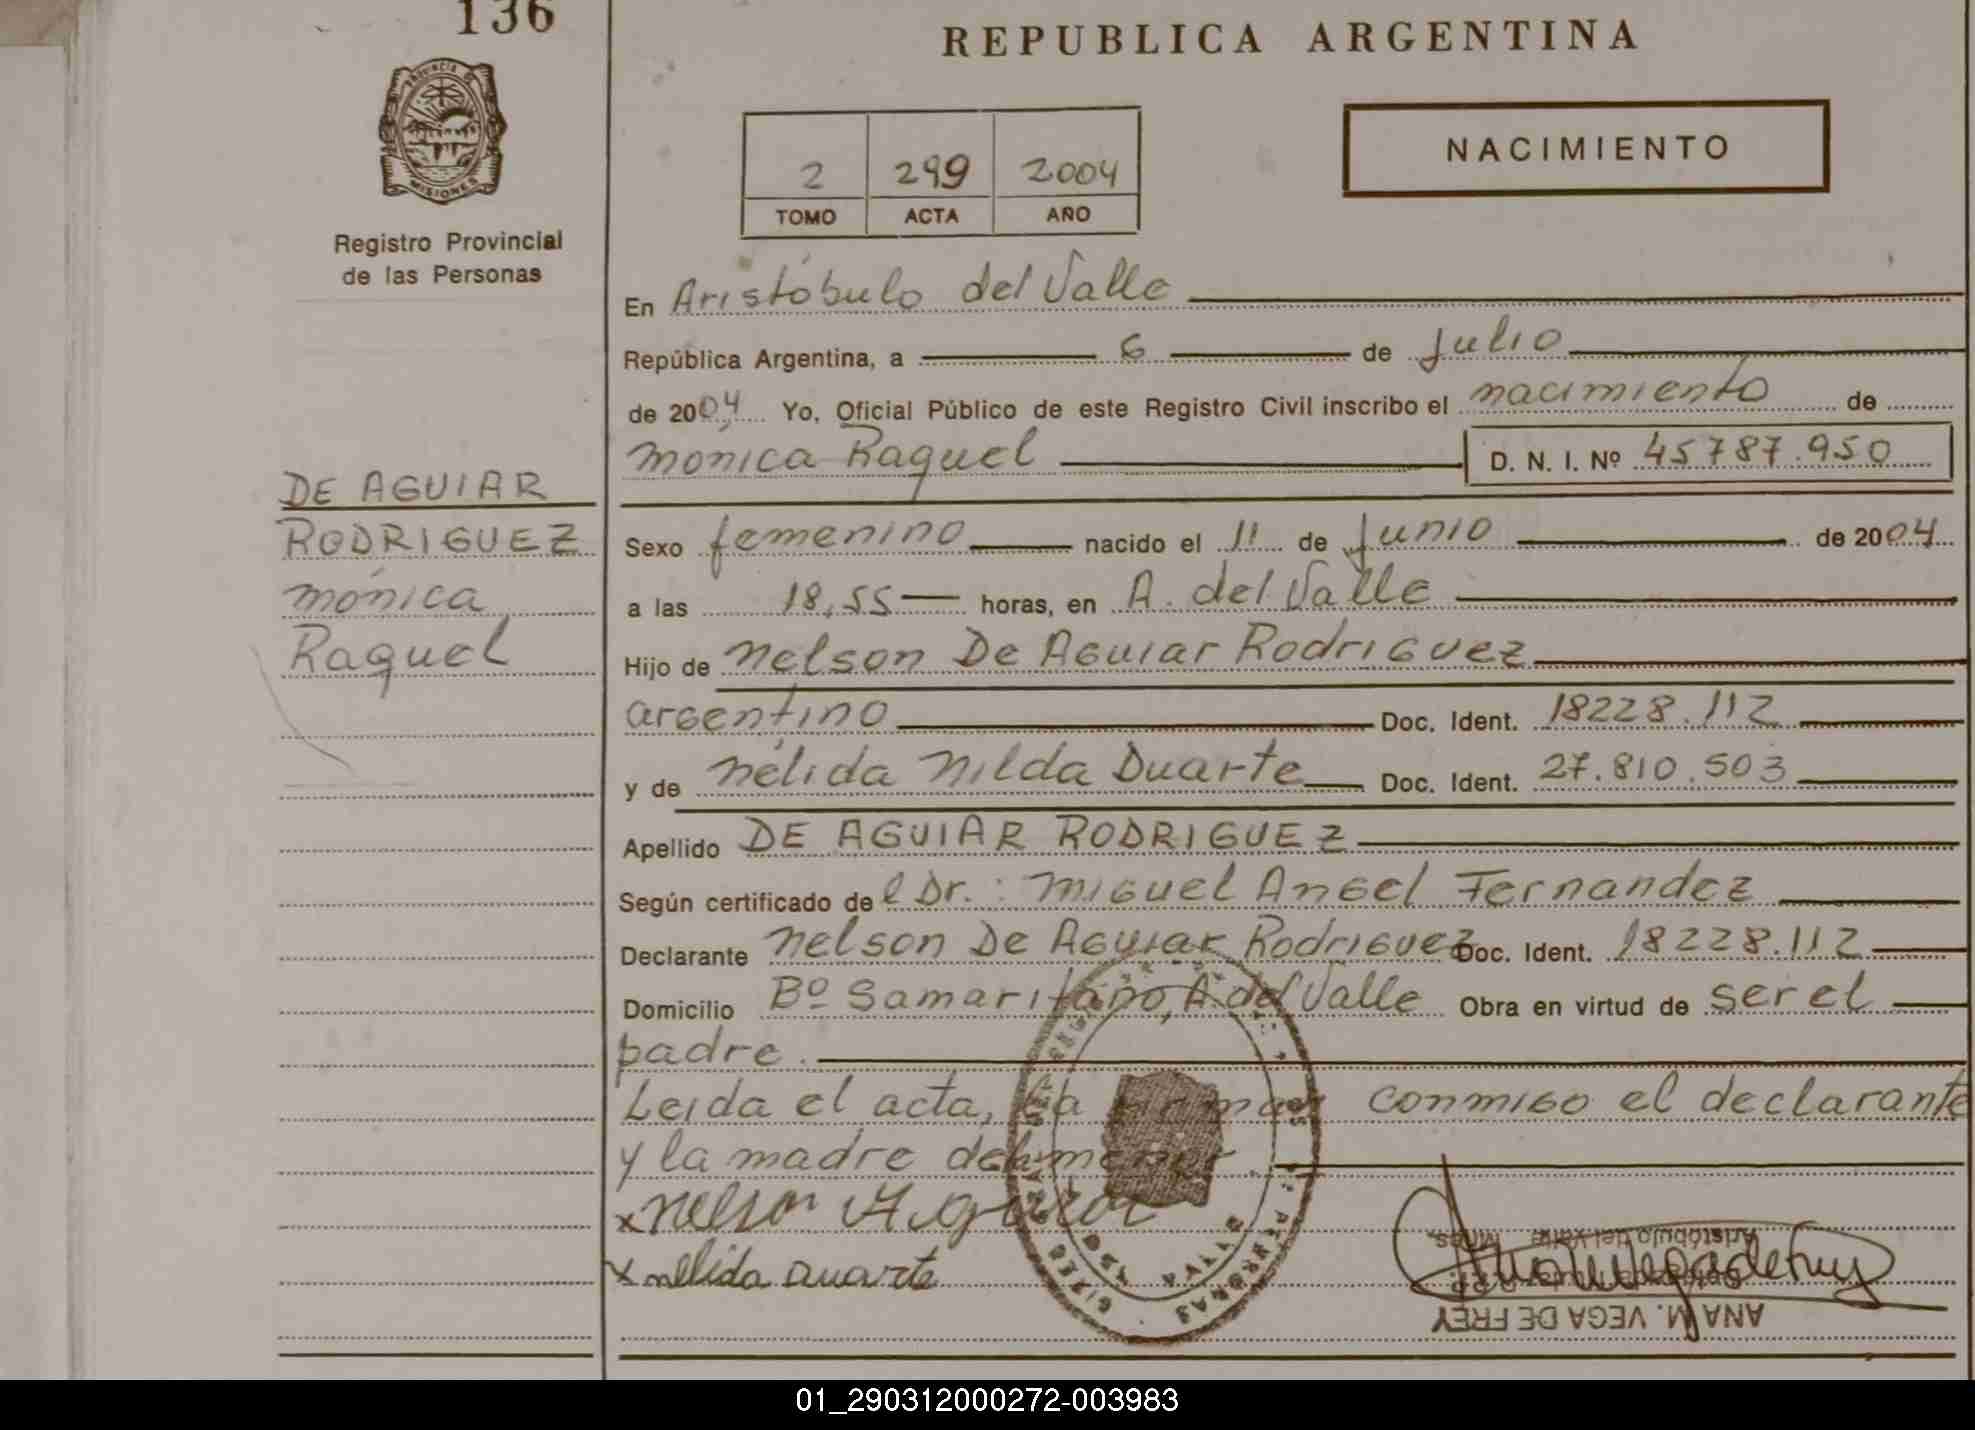 136
REPUBLICA ARGENTINA
PROVINCIA DE
MISIONES
Registro Provincial
de las Personas
2 299 2004
TOMO ACTA AÑO
NACIMIENTO
En Aristóbulo del Valle
República Argentina, a 6 de Julio
de 2004 Yo, Oficial Público de este Registro Civil inscribo el nacimiento de
Mónica Raquel D. N. I. Nº 45787.950
DE AGUIAR
RODRIGUEZ
Mónica
Raquel
Sexo femenino nacido el 11 de Junio de 2004
a las 18,55 horas, en A. del Valle
Hijo de Nelson De Aguiar Rodriguez
argentino Doc. Ident. 18228.112
y de Nélida Nilda Duarte Doc. Ident. 27.810.503
Apellido DE AGUIAR RODRIGUEZ
Según certificado del Dr.: Miguel Angel Fernandez
Declarante Nelson De Aguiar Rodriguez Doc. Ident. 18228.112
Domicilio Bº Samaritano, A. del Valle Obra en virtud de ser el
padre.
Leida el acta, la conmigo el declarante
y la madre del menor
x Nelson Aguiar
x nelida Duarte
Aristóbulo del Valle
ANA M. VEGA DE FREY
01_290312000272-003983